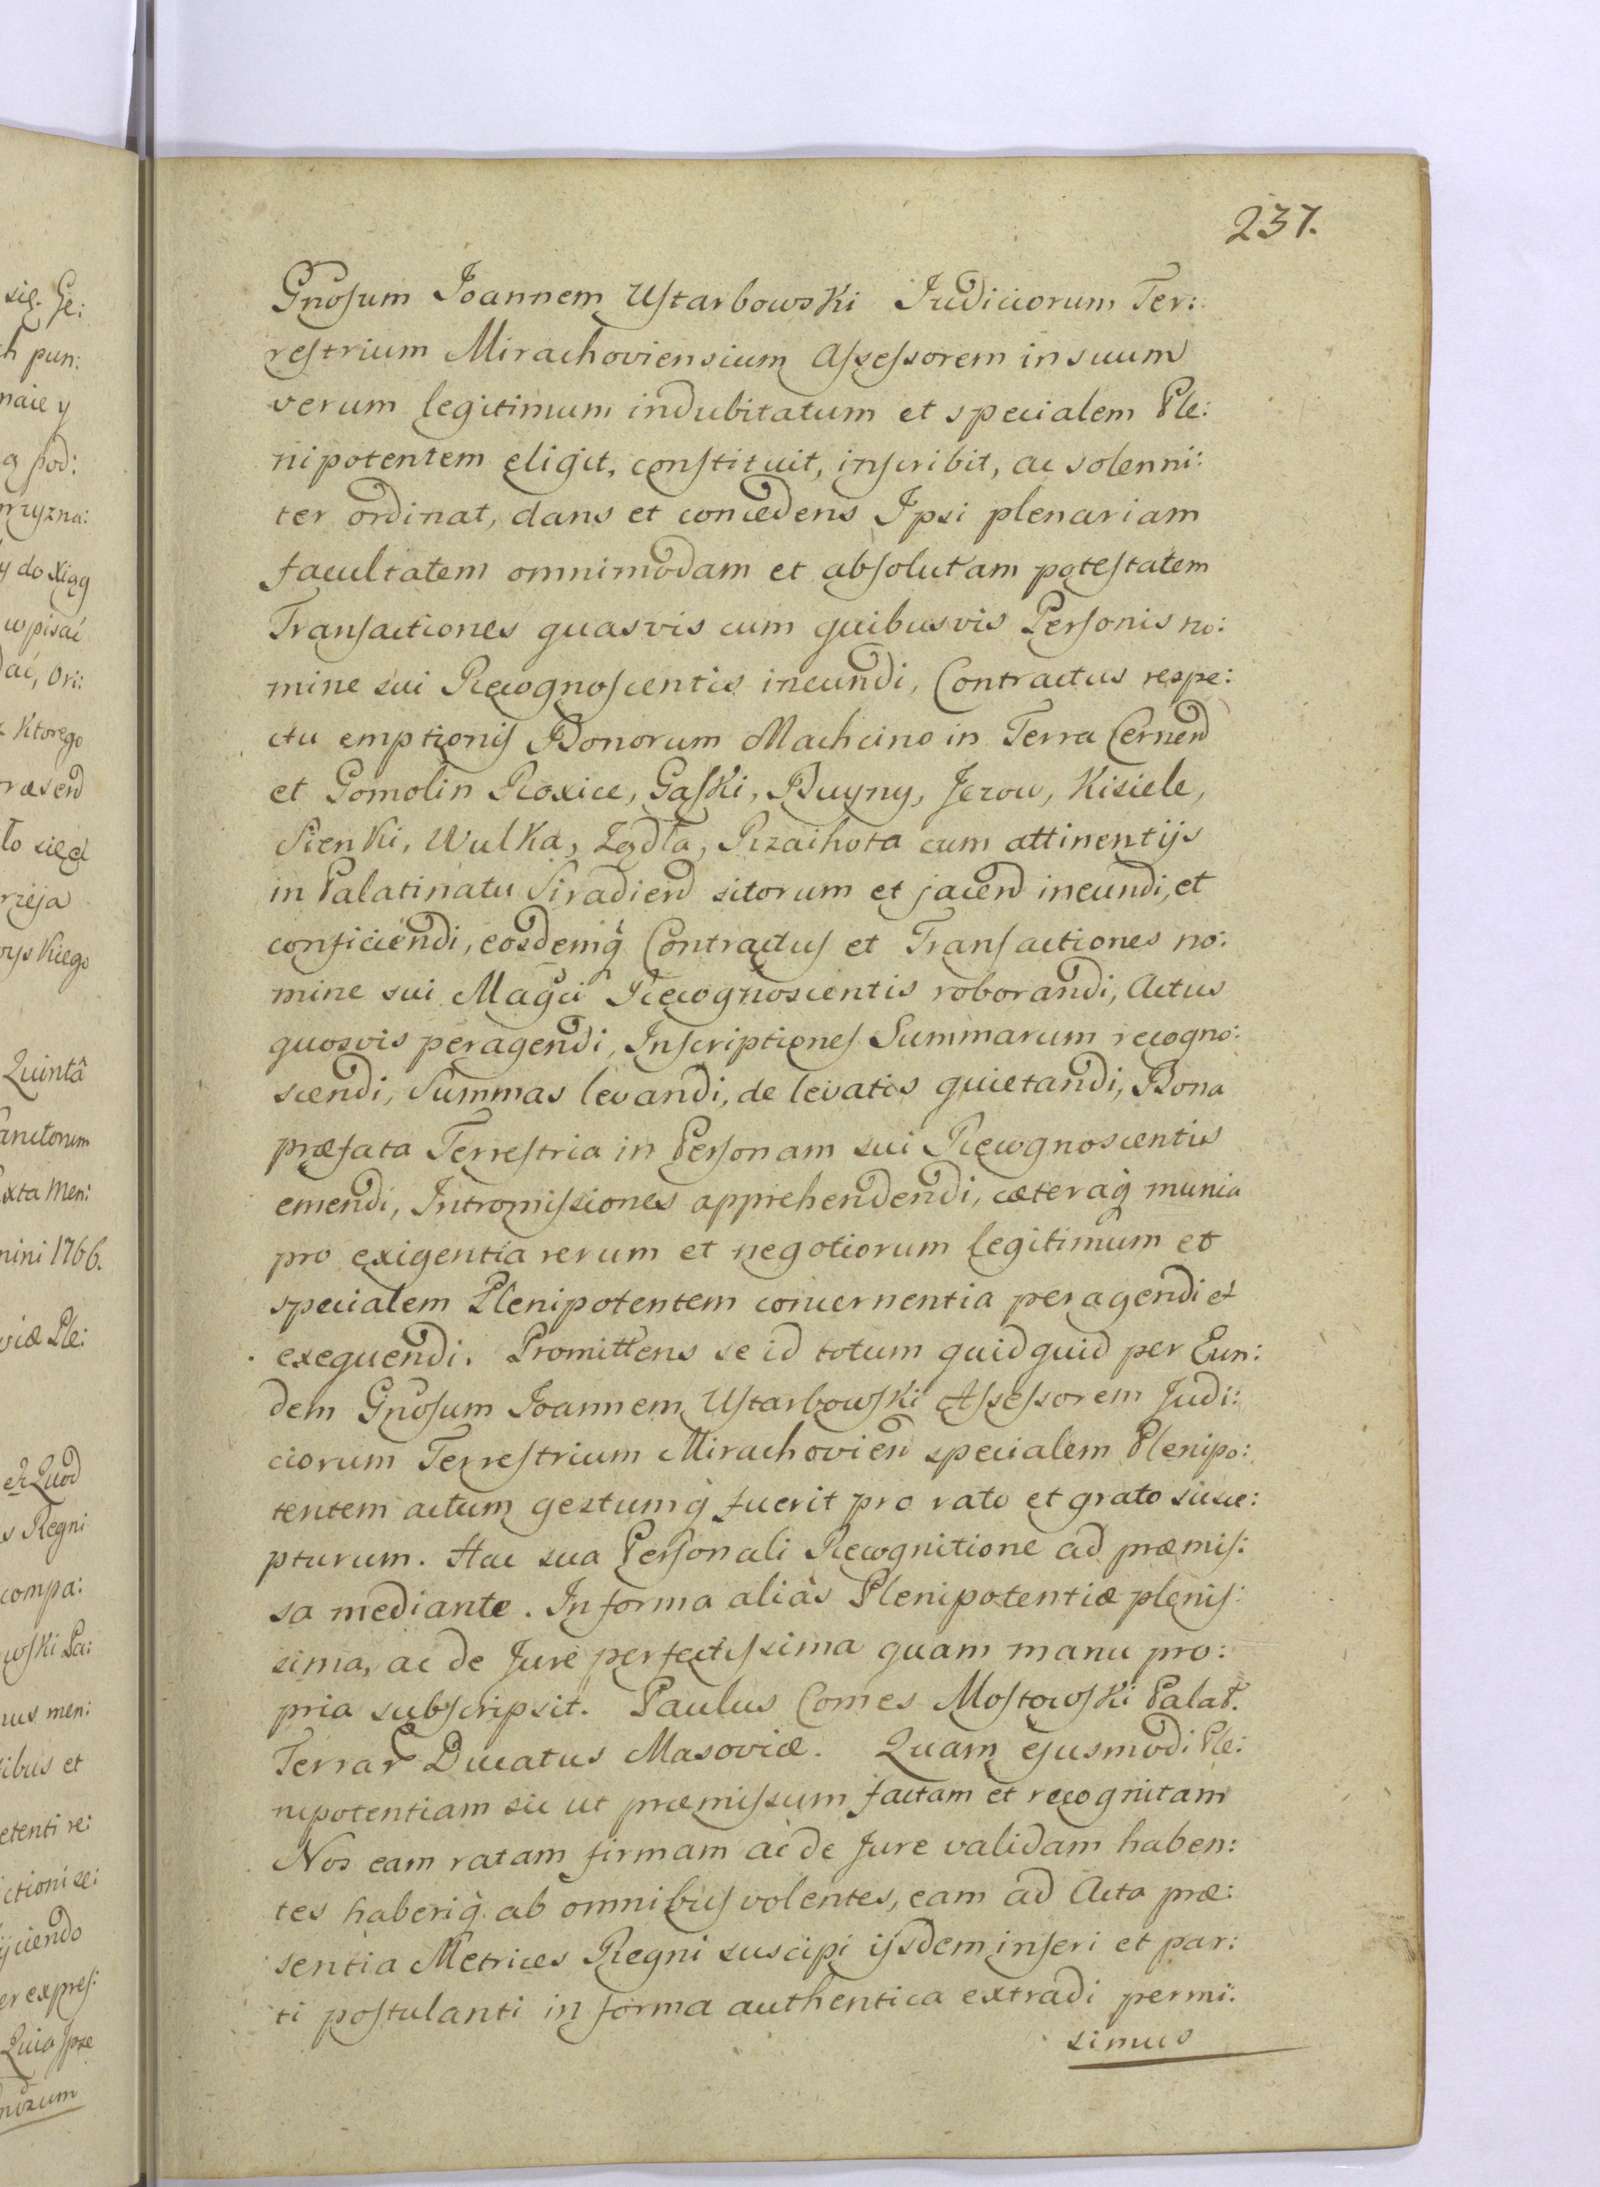 237.
Gnosum Joannem Ustarbowski Judiciorum Ter:
restrium Mirachoviensium Assessorem in suum
verum legitimum indubitatum et specialem Ple:
nipotentem eligit, constituit, inscribit, ac solenni:
ter ordinat, dans et concedens Ipsi plenariam
facultatem omnimodam et absolutam potestatem
Transactiones quasvis cum quibusvis Personis no:
mine sui Recognoscentis ineundi, Contractus respe:
ctu emptionis Bonorum Machcino in Terra Cernen
et Gomolin Roxice, Gaski, Buyny, Jezow, Kisiele,
Sienki, Wulka, Ządła, Rzaihota cum attinentijs
in Palatinatu Siradien sitorum et jacen ineundi, et
conficiendi, eosdemq Contractus et Transactiones no:
mine sui Magci Recognoscentis roborandi, Actus
quosvis peragendi, Inscriptiones Summarum recogno:
scendi, Summas levandi, de levatis quietandi, Bona
præfata Terrestria in Personam sui Recognoscentis
emendi, Intromissiones apprehendendi, cæteraq munia
pro exigentia rerum et negotiorum legitimum et
specialem Plenipotentem concernentia peragendi et
exequendi. Promittens se id totum quidquid per Eun:
dem Gnosum Joannem Ustarbowski Assessorem Judi:
ciorum Terrestrium Mirachovien specialem Plenipo:
tentem actum gestumq fuerit pro rato et grato susce:
pturum. Hac sua Personali Recognitione ad præmis:
sa mediante. In forma alias Plenipotentiæ plenis:
sima, ac de Jure perfectissima quam manu pro:
pria subscripsit. Paulus Comes Mostowski Palat.
Terrar Ducatus Masoviæ. Quam ejusmodi Ple:
nipotentiam sic ut præmissum factam et recognitam
Nos eam ratam firmam ac de Jure validam haben:
tes haberiq ab omnibus volentes, eam ad Acta præ:
sentia Metrices Regni suscipi ijsdem inseri et par:
ti postulanti in forma authentica extradi permi:
simus